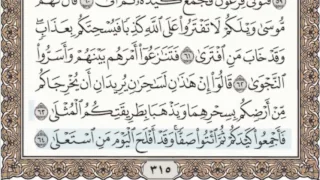 ٥٩ فَتَوَلَّىٰ فِرْعَوْنُ فَجَمَعَ كَيْدَهُۥ ثُمَّ أَتَىٰ ٦٠ قَالَ لَهُم
مُّوسَىٰ وَيْلَكُمْ لَا تَفْتَرُوا۟ عَلَى ٱللَّهِ كَذِبًا فَيُسْحِتَكُم بِعَذَابٍ
وَقَدْ خَابَ مَنِ ٱفْتَرَىٰ ٦١ فَتَنَٰزَعُوٓا۟ أَمْرَهُم بَيْنَهُمْ وَأَسَرُّوا۟
ٱلنَّجْوَىٰ ٦٢ قَالُوٓا۟ إِنْ هَٰذَٰنِ لَسَٰحِرَٰنِ يُرِيدَانِ أَن يُخْرِجَاكُم
مِّنْ أَرْضِكُم بِسِحْرِهِمَا وَيَذْهَبَا بِطَرِيقَتِكُمُ ٱلْمُثْلَىٰ ٦٣
فَأَجْمِعُوا۟ كَيْدَكُمْ ثُمَّ ٱئْتُوا۟ صَفًّا وَقَدْ أَفْلَحَ ٱلْيَوْمَ مَنِ ٱسْتَعْلَىٰ ٦٤
٣١٥